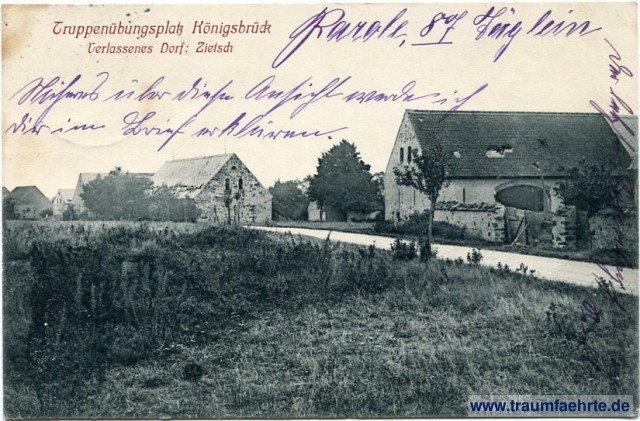 Truppenübungsplatz Königsbrück
Verlassenes Dorf: Zietsch
Parole, 87 Täglein
Näheres über diese Ansicht werde ich
dir im Brief erklären.
www.traumfaehrte.de